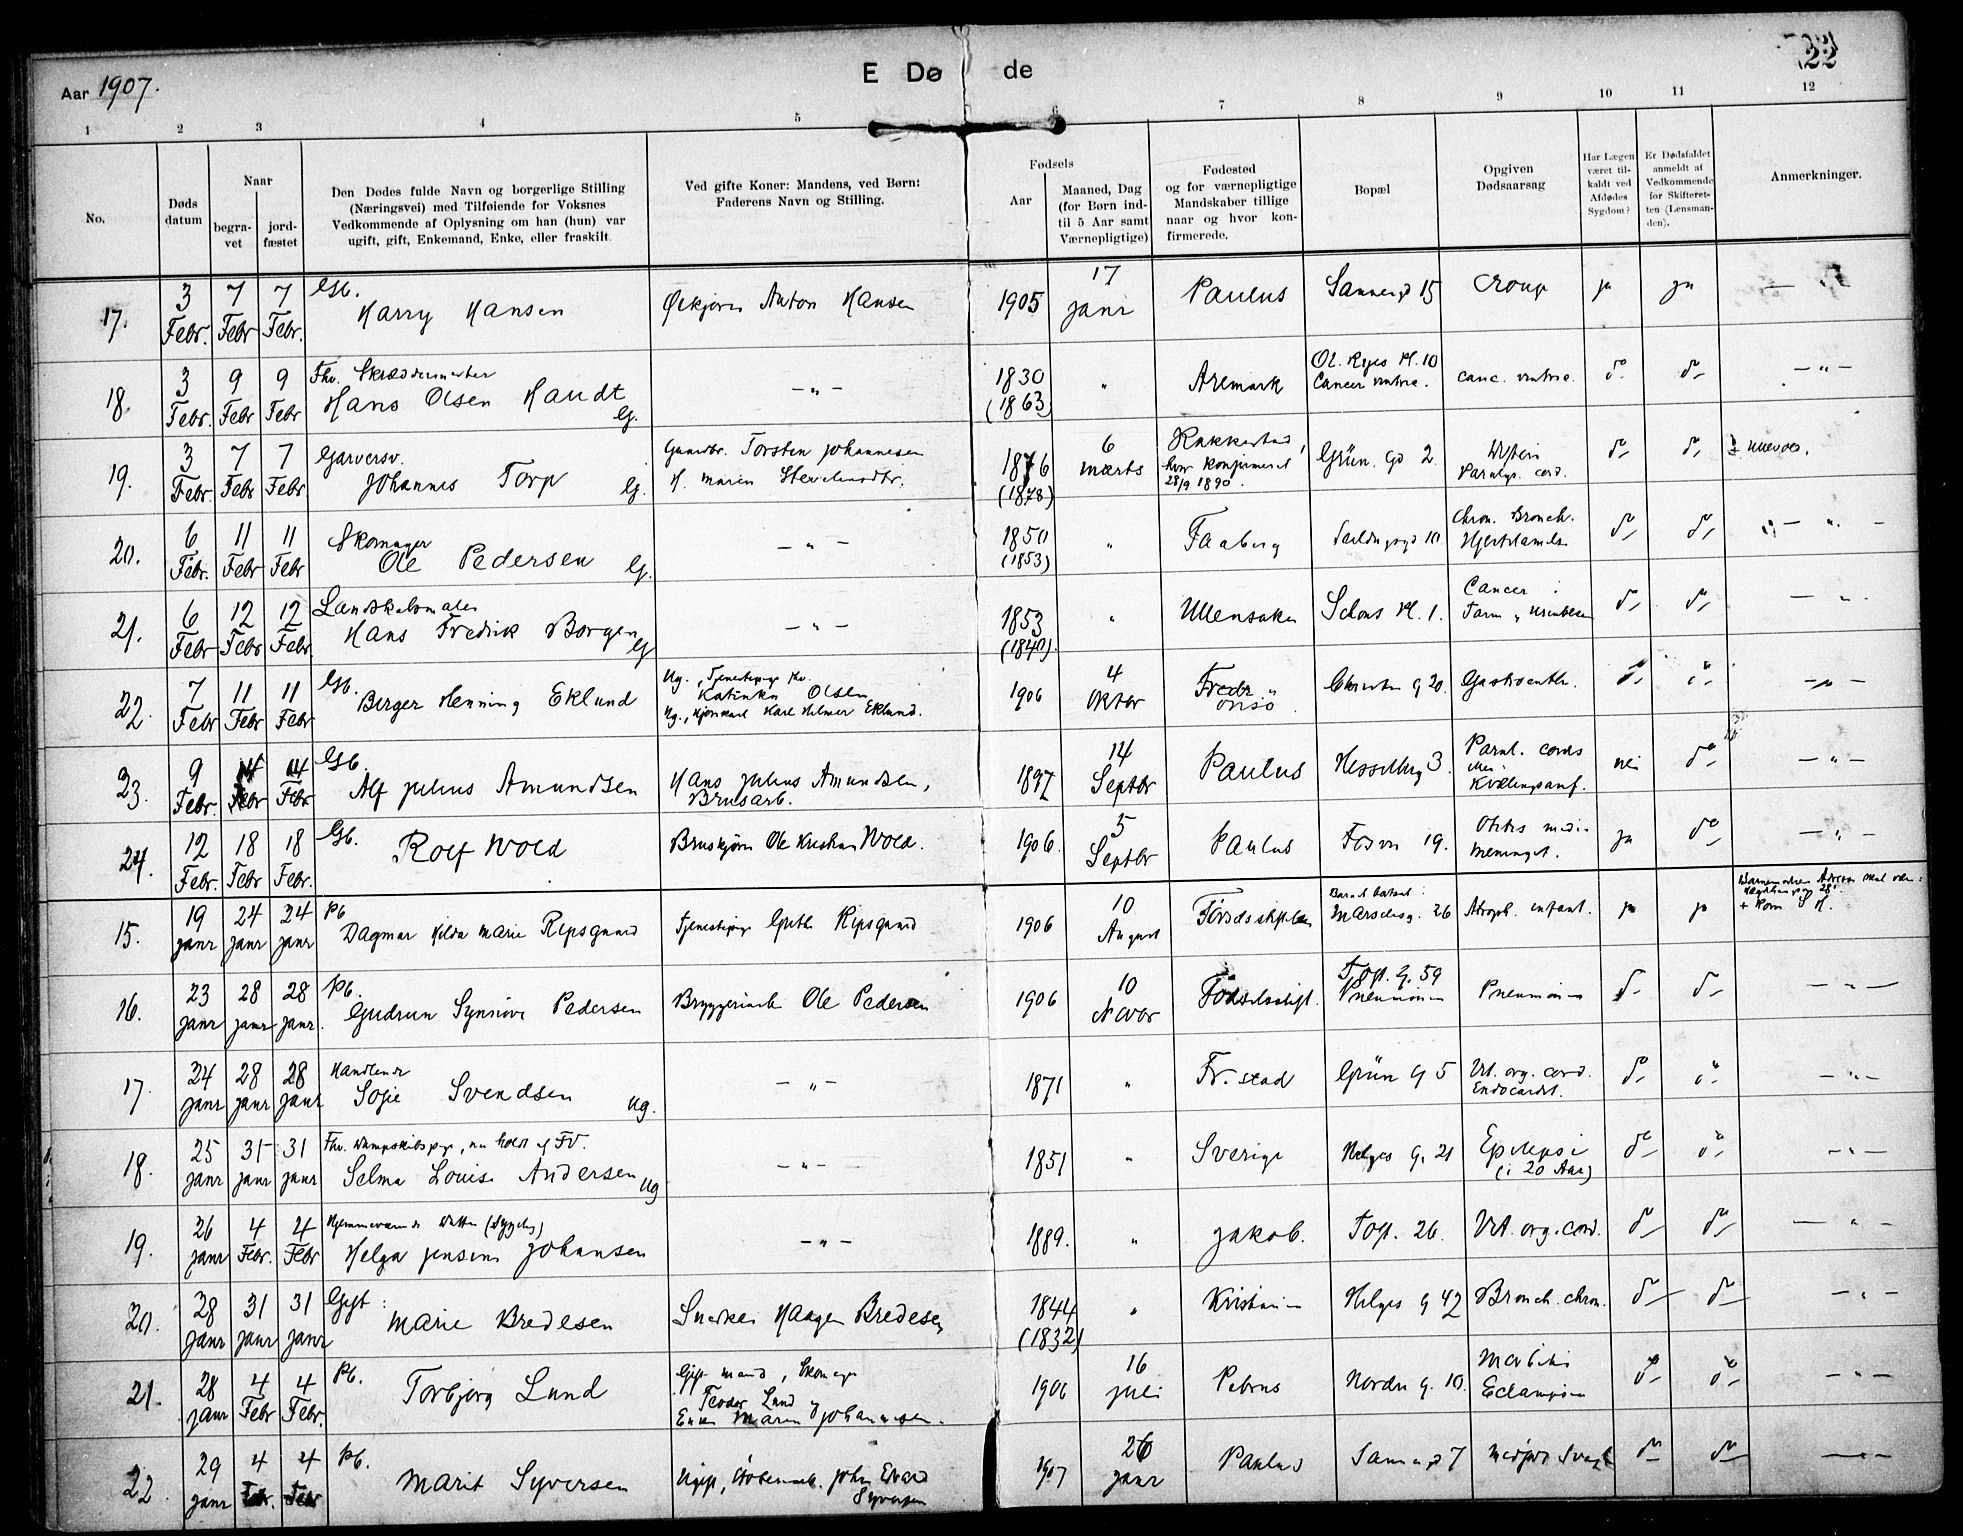 Aar 1907.
E Dø de
22
1 2 3 4 5 6 7 8 9 10 11 12
No.
Døds datum
Naar
begra- vet
jord- fæstet
Den Dødes fulde Navn og borgerlige Stilling
(Næringsvei) med Tilføiende for Voksnes
Vedkommende af Oplysning om han (hun) var
ugift, gift, Enkemand, Enke, eller fraskilt.
Ved gifte Koner: Mandens, ved Børn:
Faderens Navn og Stilling.
Fødsels
Aar
Maaned, Dag
(for Børn ind-
til 5 Aar samt
Værnepligtige)
Fødested
og for værnepligtige
Mandskaber tillige
naar og hvor kon-
firmerede.
Bopæl
Opgiven
Dødsaarsag
Har Lægen
været til-
kaldt ved
Afdødes
Sygdom?
Er Dødsfaldet
anmeldt af
Vedkommende
for Skifteret-
ten (Lensman-
den).
Anmerkninger.
17. 3 Febr. 7 Febr 7 Febr. Gb. Harry Hansen Anton Hansen 1905 17 Janr Paulus 15 Croup ja ja —
18. 3 Febr. 9 Febr 9 Febr Fhv. Skræddermester Hans Olsen Haudt G. — " — 1830 (1863) " Aremark Ol. Ryes Pl. 10 Cancer ventric. canc. ventric. do do — " —
19. 3 Febr. 7 Febr. 7 Febr. Garversv. Johannes Torp G. Gaardbr. Torsten Johannesen 1876 (1878) 6 Marts Rakkestad, konfirmeret 28/9 1890. Grün. Gd 2 Paralys. cord. do do
20. 6 Febr. 11 Febr 11 Febr Skomager Ole Pedersen G. — " — 1850 (1853) " Faaberg 10 Chron. Bronch. do do — " —
21. 6 Febr 12 Febr 12 Febr. Landskabsmaler Hans Fredrik Borgen G — " — 1853 (1840) " Ullensaker Schous Pl. 1. Cancer i Tarm do do — " —
22. 7 Febr 11 Febr 11 Febr Gb. Berger Henning Eklund Ug. Katinka Olsen Ug., Karl Hilmer Eklund. 1906 4 Oktbr Christn G 20. Gastroenthr. do do — " —
23. 9 Febr. 14 Febr 14 Febr Gb. Alf Julius Amundsen Hans Julius Amundsen, Brusarb. 1897 14 Septbr Paulus Hesselbg 3 Paral. cordis Kvælningsanf. nei do — " —
24. 12 Febr. 18 Febr 18 Febr. Gb. Rolf Wold Bruskjører Ole Kristian Wold. 1906 5 Septbr Paulus Fosvn 19. Otitis media Meningit. ja do — " —
15. 19 Janr 24 Janr 24 Janr Pb Dagmar Hilda Marie Ripsgaard Tjenestepige Ripsgaard 1906 10 August Fødselsstiftelsen 26 Atroph. infant. ja ja
16. 23 Janr 28 Janr 28 Janr. Pb. Gudrun Synnøve Pedersen Bryggeriarb Ole Pedersen 1906 10 Novbr Fødselsstift. Toft. G. 59 Pneumonien Pneumonien do do — " —
17. 24 Janr 28 Janr 28 Janr Handlende Sofie Svendsen ug. — " — 1871 " Fr.stad Grün G 5 Vit. org. cord. Endocardit. do do — " —
18. 25 Janr 31 Janr 31 Janr Selma Louise Andersen ug — " — 1851 " Sverige Helges G. 21 Epilepsi (i 20 Aar) do do — " —
19. 26 Janr 4 Febr. 4 Febr Hjemmeværende Datter Helga Jensine Johansen — " — 1889. " Jakob. Toft. 26. Vit. org. cord. do do — " —
20. 28 Janr 31 Janr 31 Janr Gift: Marie Bredesen Snedker Haagen Bredesen 1844 (1832) " Kristiania Helges G 42 Bronch. chron. do do — " —
21. 28 Janr 4 Febr 4 Febr. Pb. Torbjørg Lund Gift Mand, Skomager Teodor Lund og Johannesen. 1906 16 Juli Petrus Nordre G. 10. Morbilli Eclampsia do do — " —
22. 29 Janr 4 Febr. 4 Febr Pb. Marit Syversen Ugift, John Edvard Syversen 1907 26 Janr Paulus 7 Medfødt Svagh do do — " —